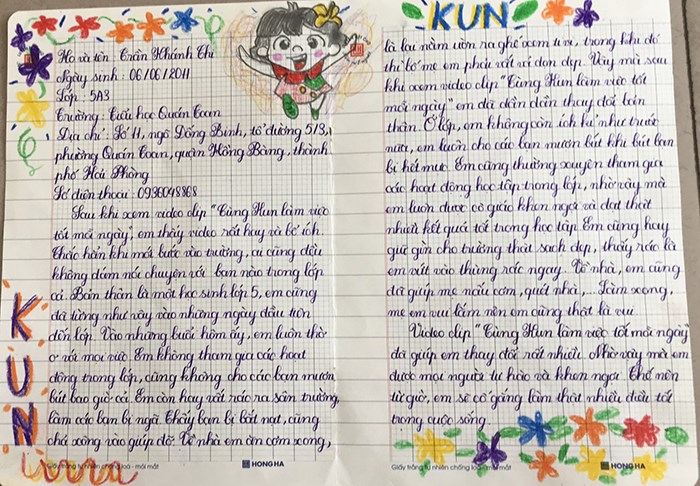 Họ và tên : Trần Khánh Chi
Ngày sinh : 06/06/2011
Lớp : 5A3
Trường : Tiểu học Quán Toan
Địa chỉ : Số 11, ngõ Đống Bình, tổ đường 5/3,
phường Quán Toan, quận Hồng Bàng, thành
phố Hải Phòng
Số điện thoại : 0936048868
Sau khi xem video clip "Cùng Kun làm việc
tốt mỗi ngày", em thấy video rất hay và bổ ích.
Chắc hẳn khi mới bước vào trường, cu cũng đều
không dám nói chuyện với bạn nào trong lớp
cả. Bản thân là một học sinh lớp 5, em cũng
đã từng như vậy vào những ngày đầu tiên
đến lớp. Vào những buổi hôm ấy, em luôn thờ
ơ với mọi việc. Em không tham gia các hoạt
động trong lớp, cũng không cho các bạn mượn
bút bao giờ cả. Em còn hay vứt rác ra sân trường,
làm các bạn bị ngã. Thấy bạn bị bắt nạt, cũng
chả xông vào giúp đỡ. Về nhà em ăn cơm xong,
KUN
KUN
là lại nằm ườn ra ghế xem ti vi, trong khi đó
thì bố mẹ em phải vất vả dọn dẹp. Vậy mà sau
khi xem video clip "Cùng Kun làm việc tốt
mỗi ngày" em đã dần dần thay đổi bản
thân. Ở lớp, em không còn ích kỉ như trước
nữa, em luôn cho các bạn mượn bút khi bút bạn
bị hết mực. Em cũng thường xuyên tham gia
các hoạt động học tập trong lớp, nhờ vậy mà
em luôn được cô giáo khen ngợi và đạt thật
nhiều kết quả tốt trong học tập. Em cũng hay
giữ gìn cho trường thật sạch đẹp, thấy rác là
em vứt vào thùng rác ngay. Về nhà, em cũng
đã giúp mẹ nấu cơm, quét nhà,... Làm xong,
mẹ em vui lắm nên em cũng thật là vui.
Video clip "Cùng Kun làm việc tốt mỗi ngày"
đã giúp em thay đổi rất nhiều. Nhờ vậy mà em
được mọi người tự hào và khen ngợi. Thế nên
từ giờ, em sẽ cố gắng làm thật nhiều điều tốt
trong cuộc sống.
Giấy trắng tự nhiên chống loá - mỏi mắt HONG HA
Giấy trắng tự nhiên chống loá - mỏi mắt HONG HA